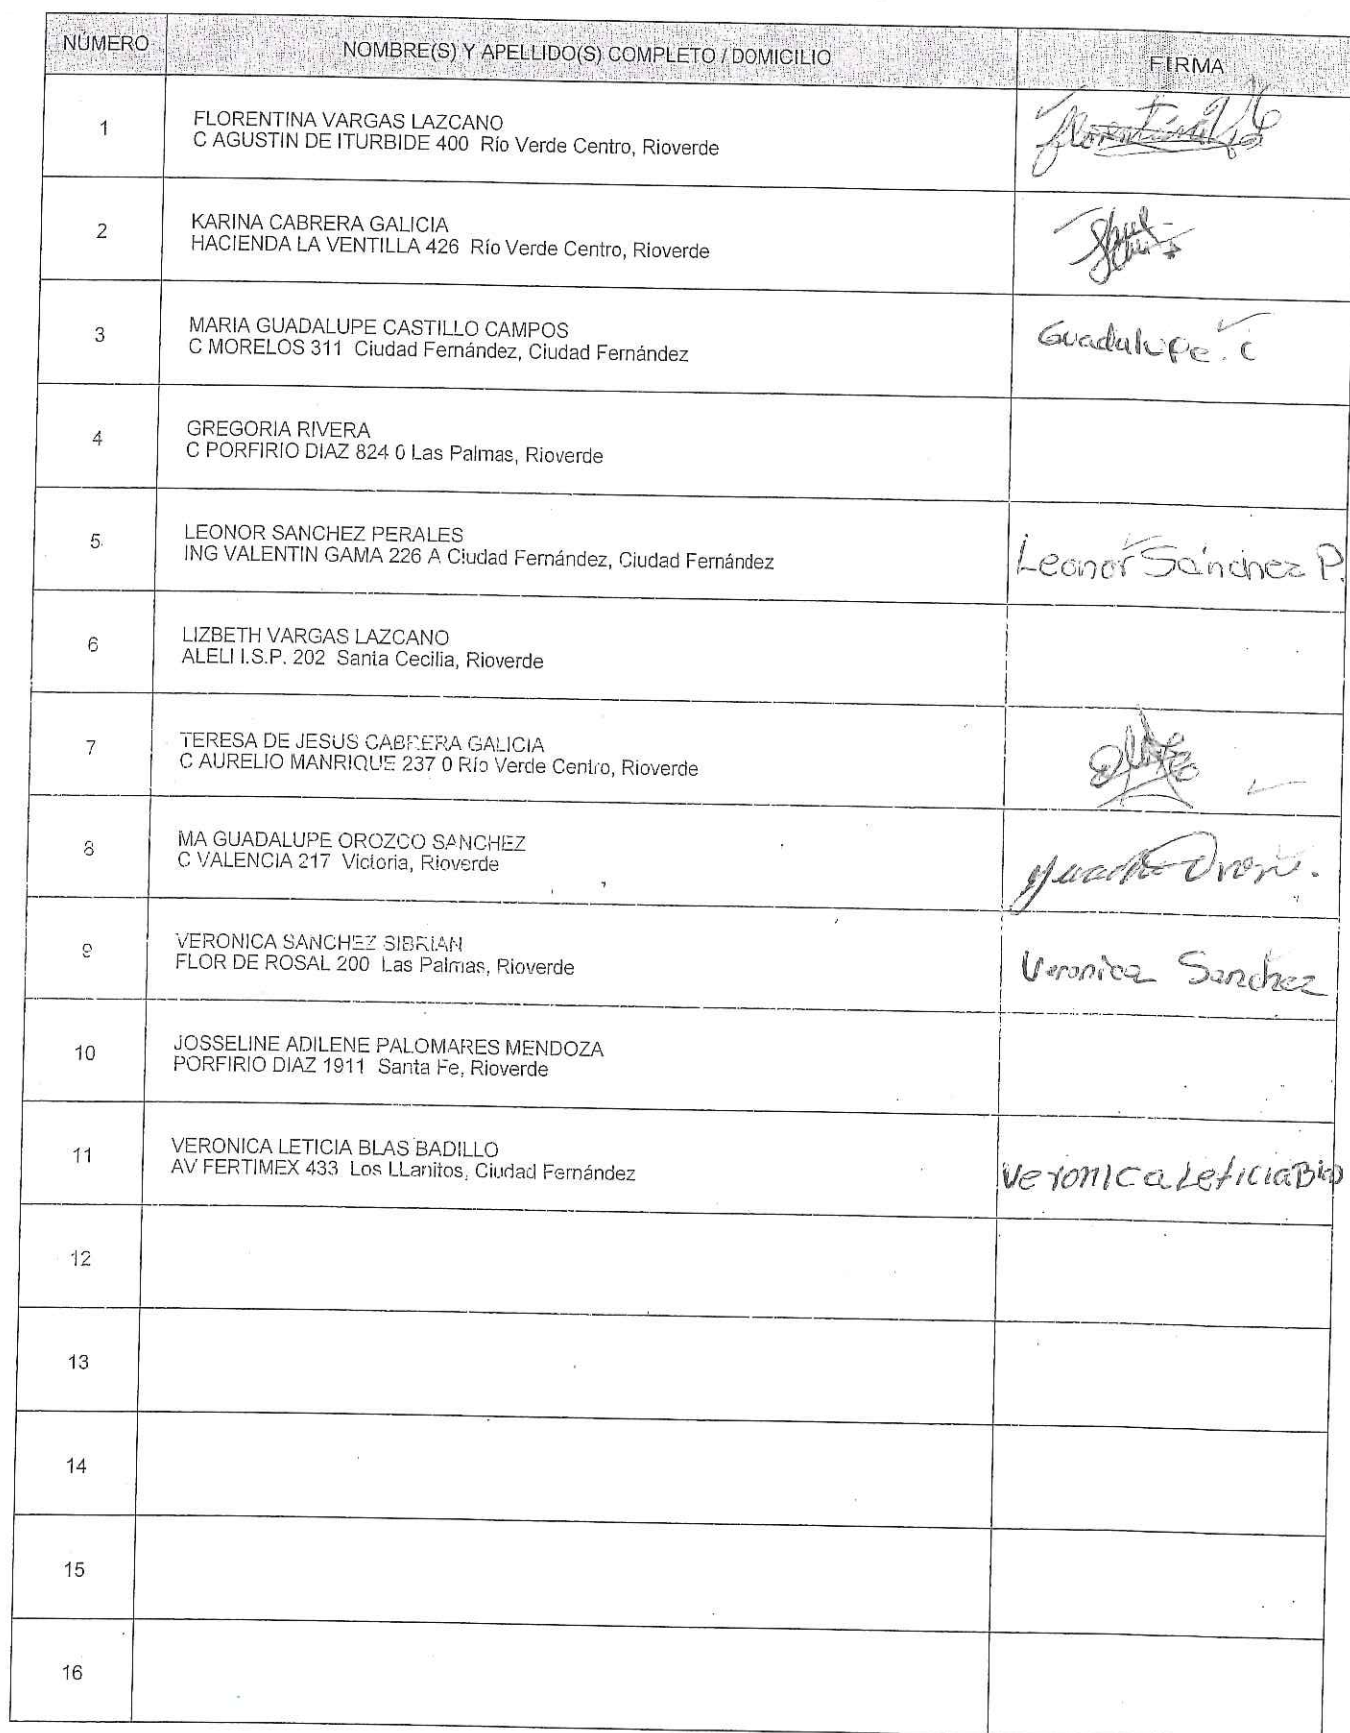 NÚMERO NOMBRE(S) Y APELLIDO(S) COMPLETO / DOMICILIO FIRMA
1 FLORENTINA VARGAS LAZCANO
C AGUSTIN DE ITURBIDE 400 Río Verde Centro, Rioverde
2 KARINA CABRERA GALICIA
HACIENDA LA VENTILLA 426 Río Verde Centro, Rioverde
3 MARIA GUADALUPE CASTILLO CAMPOS
C MORELOS 311 Ciudad Fernández, Ciudad Fernández
Guadalupe. C
4 GREGORIA RIVERA
C PORFIRIO DIAZ 824 0 Las Palmas, Rioverde
5 LEONOR SANCHEZ PERALES
ING VALENTIN GAMA 226 A Ciudad Fernández, Ciudad Fernández
Leonor Sánchez P.
6 LIZBETH VARGAS LAZCANO
ALELI I.S.P. 202 Santa Cecilia, Rioverde
7 TERESA DE JESUS CABRERA GALICIA
C AURELIO MANRIQUE 237 0 Río Verde Centro, Rioverde
8 MA GUADALUPE OROZCO SANCHEZ
C VALENCIA 217 Victoria, Rioverde
9 VERONICA SANCHEZ SIBRIAN
FLOR DE ROSAL 200 Las Palmas, Rioverde
Veronica Sanchez
10 JOSSELINE ADILENE PALOMARES MENDOZA
PORFIRIO DIAZ 1911 Santa Fe, Rioverde
11 VERONICA LETICIA BLAS BADILLO
AV FERTIMEX 433 Los LLanitos, Ciudad Fernández
Veronica Leticia
12
13
14
15
16